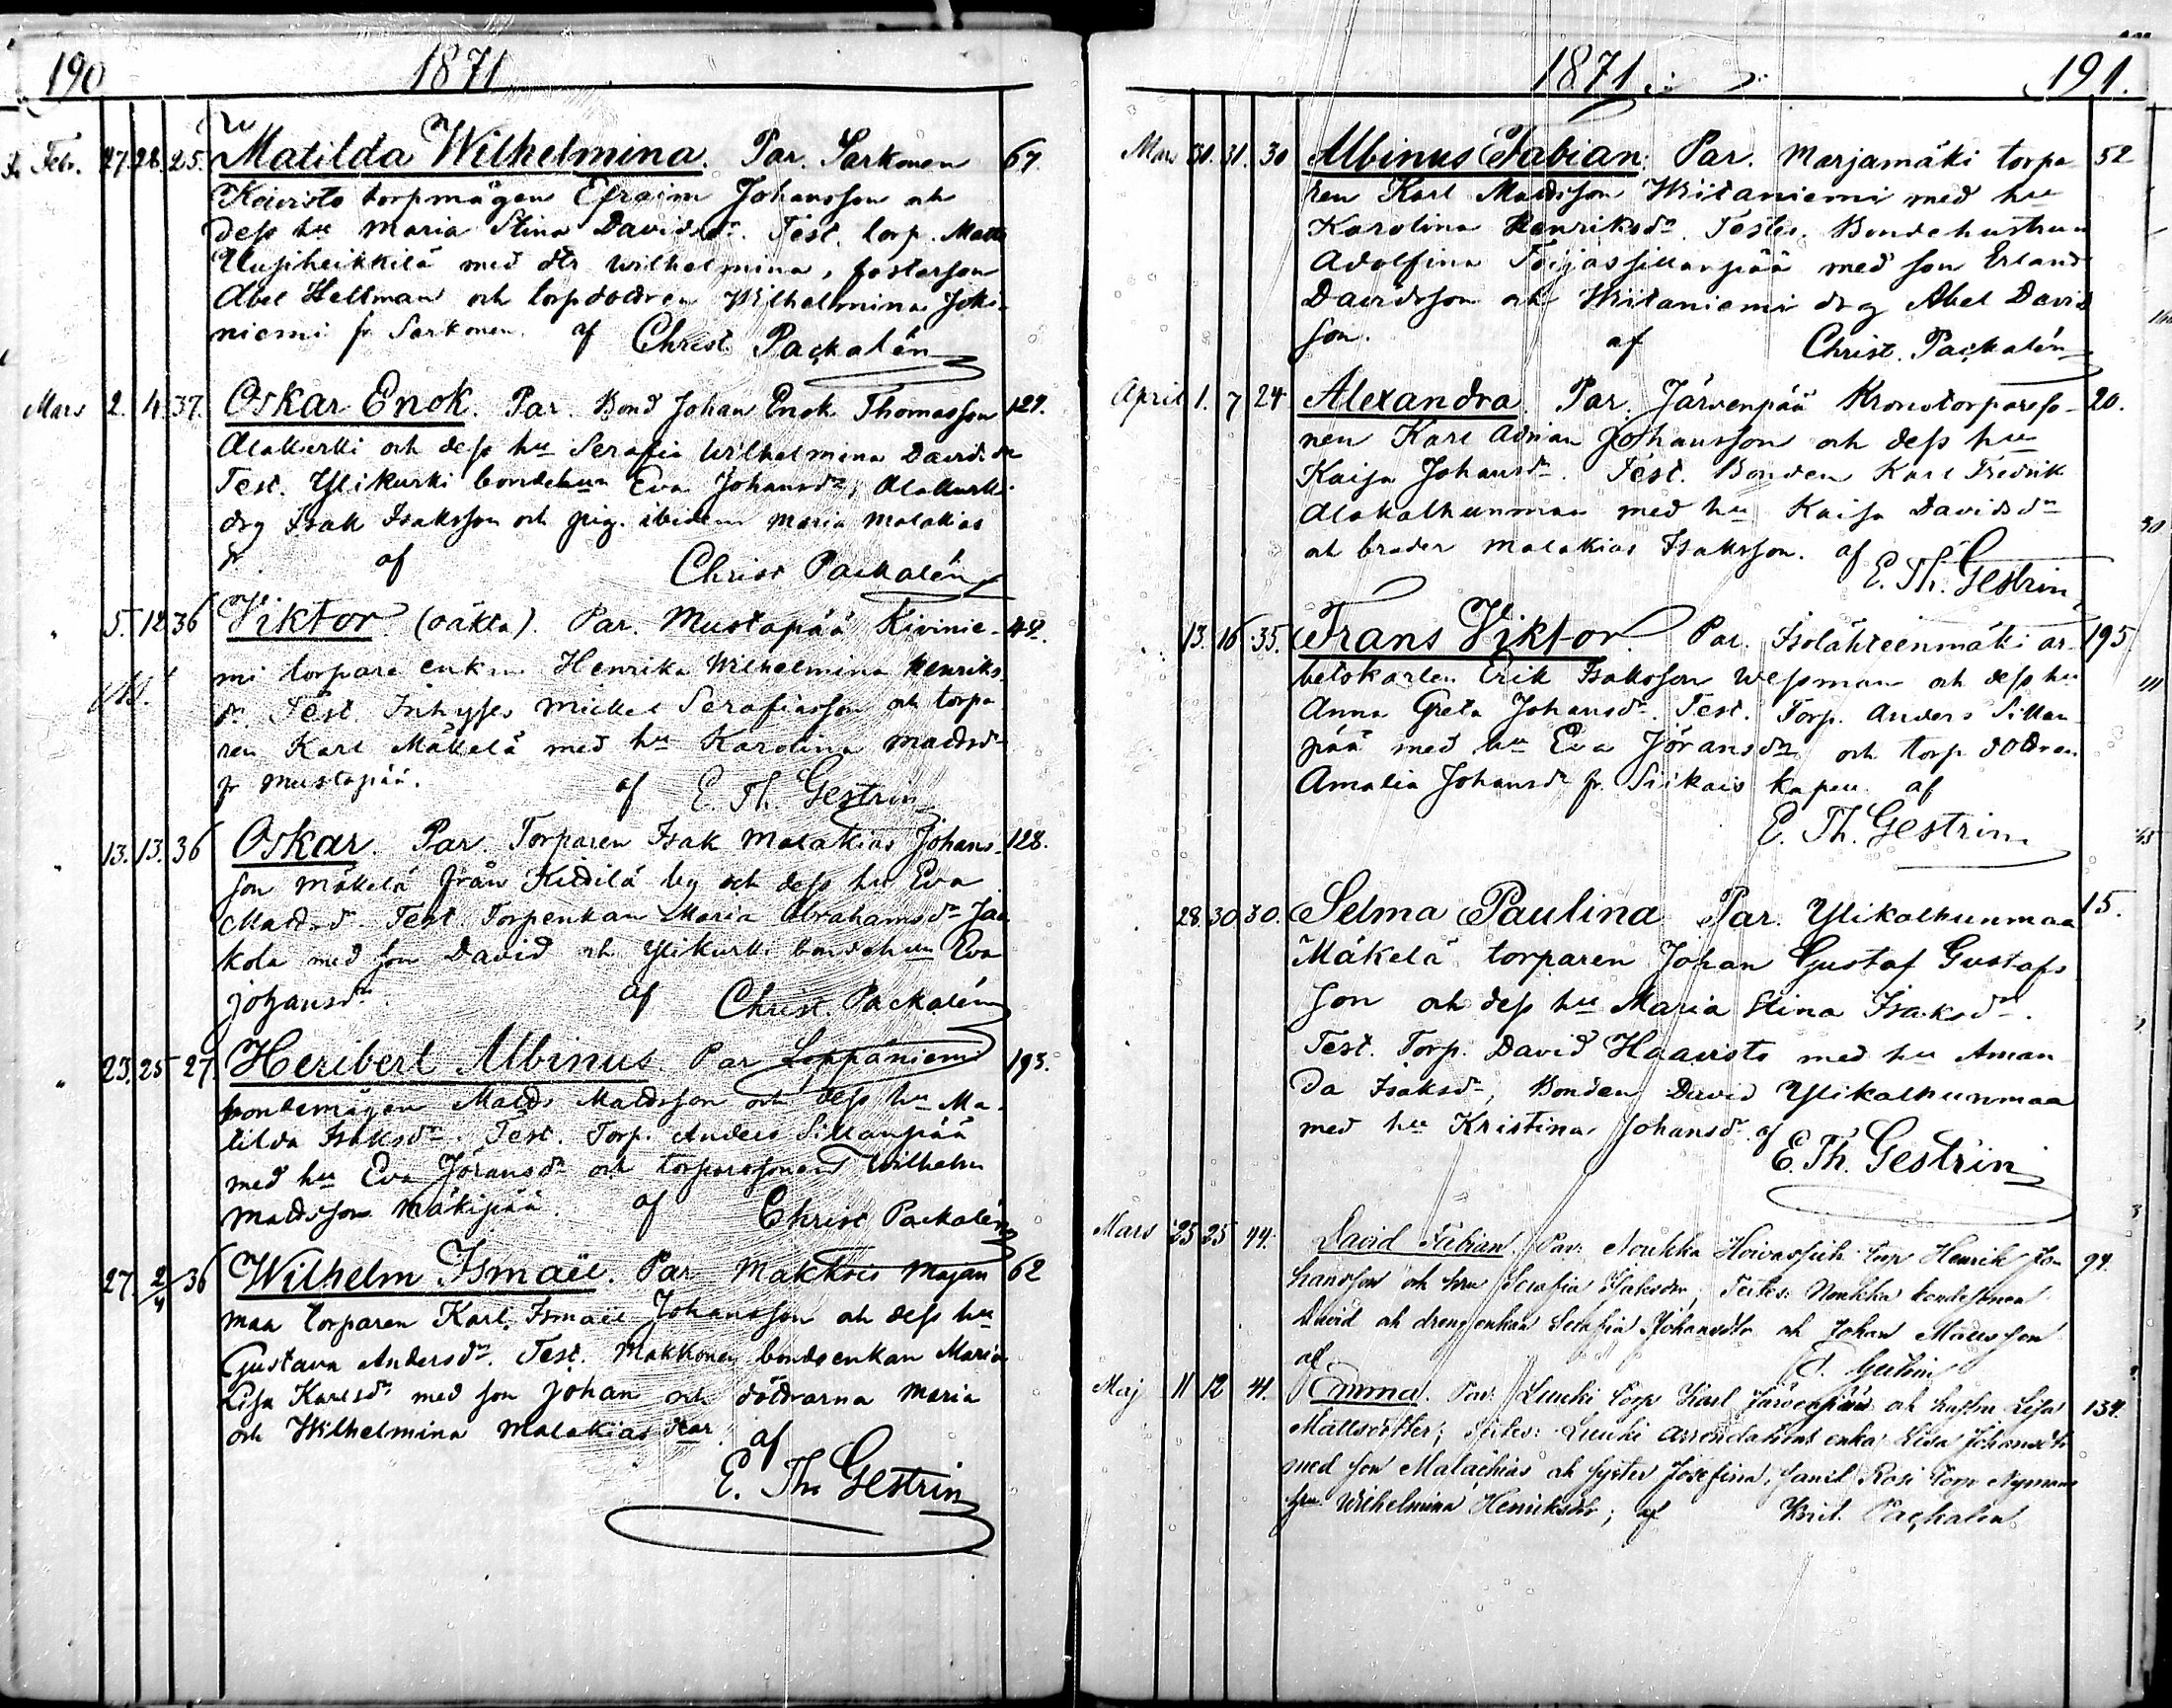 190 1871
Febr. 27. 28. 25. Matilda Wilhelmina. Par. Sarkonen 67.
Koivisto torpmågen Efraim Johansson och
dess hu Maria Stina Davidsdr. Test. torp. Matts
Uusiheikkilä med dtr Wilhelmina, fosterson
Abel Hellman och torpdottren Wilhelmina Joki-
niemi fr Sarkonen. af Christ. Packalén
Mars 2. 4. 37. Oskar Enok. Par. Bond Johan Enok Thomasson 129.
Alakurki och dess hu Serafia Wilhelmina Davidsdr
Test. Ylikurki bondehun Eva Johansdr, Alakurki
drg Isak Isaksson och pig. ibidem Maria Malakias
dr af Christ Packalén
" 5. 12 36 Viktor. (oäkta). Par. Mustapää Kivinie- 49.
mi torpare enkan Henrika Wilhelmina Henriks
dr. Test. Inhyses Mickel Serafiasson och torpa
ren Karl Mäkelä med hu Karolina Mattsdr
fr Mustapää. af E. Th. Gestrin
" 13. 13. 36 Oskar. Par. Torparen Isak Malakias Johans- 128.
son Mäkelä från Kidilä by och dess hu Eva
Mattsdr. Test. Torpenkan Maria Abrahamsdr Jaa
kola med son David och Ylikurki bondehun Eva
Johansdr. af Christ. Packalén
" 23. 25 27. Heribert Albinus. Par Leppäniemi 193.
bondemågen Matts Mattsson och dess hu Ma-
tilda Isaksdr. Test. Torp. Anders Sillanpää
med hu Eva Jöransdr och torparesonen Wilhelm
Mattsson Mäkipää. af Christ Packalén
27. 2/4 36 Wilhelm Ismaël. Par Makkois Majan 62
maa torparen Karl Ismaël Johansson och dess hu
Gustava Andersdr. Test. Makkonen bondeenkan Maria
Lisa Karlsdr med son Johan och döttrarna Maria
och Wilhelmina Malakias dtrar. af
E. Th. Gestrin
1871 191.
Mars 30. 31. 30 Albinus Fabian. Par. Marjamäki torpa- 52
ren Karl Mattsson Wiitaniemi med hu
Karolina Henriksdr. Testes. Bondehustrun
Adolfina Toijassillanpää med son Erland
Davidsson och Wiitaniemi drg Abel David
son. af Christ. Packalén
April 1. 7 24 Alexandra. Par. Järvenpää Kronotorpareso- 20.
nen Karl Adrian Johansson och dess hu
Kaisa Johansdr. Test. Bonden Karl Fredrik
Alakalhunmaa med hu Kaisa Davidsdr
och broder Malakias Isaksson. af E. Th. Gestrin
13. 16 35. Frans Viktor. Par. Isolähteenmäki ar- 195
betskarlen Erik Isaksson Wessman och dess hu
Anna Greta Johansdr. Test. Torp. Anders Sillan
pää med hu Eva Jöransdr och torp dottren
Amalia Johansdr fr Siikais kapell af
E. Th. Gestrin
28. 30 30. Selma Paulina. Par. Ylikalhunmaa 15.
Mäkelä torparen Johan Gustaf Gustafs
son och dess hu Maria Stina Isaksdr.
Test. Torp. David Haavisto med hu Aman
da Isaksdr, Bonden David Ylikalhunmaa
med hu Kristina Johansdr. af
E. Th. Gestrin
Mars 23 25 44. David Fabian. Par: Noukka torp Henrik Jo- 94.
hansson och hru Serafia Isaksdr, Testes: Noukka bondesonen
David och drengenkan Serafia Johansdtr och Johan Mattsson
af Gestrin
Maj 11 12 41. Emma. Par: Luncki torp Karl Järvenpää och hustru Lisa 134.
Mattsdotter; Testes: Luncki arrendators enka Lisa Johansdtr
med son Malachias och syster Josefina, samt Rosi torp Nyman
hru Wilhelmina Henriksdtr; af Krist. Packalén